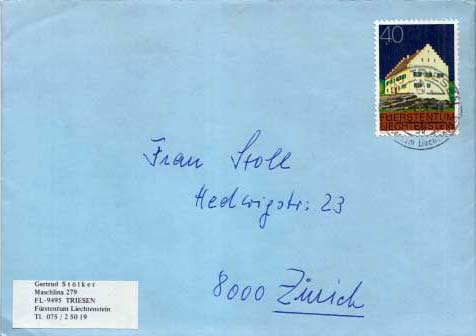 40
FÜRSTENTUM
LIECHTENSTEIN
Frau Stoll
Hedwigstr. 23
8000 Zürich
Gertrud Stölker
Maschlina 279
FL-9495 TRIESEN
Fürstentum Liechtenstein
Tl. 075 / 2 50 19